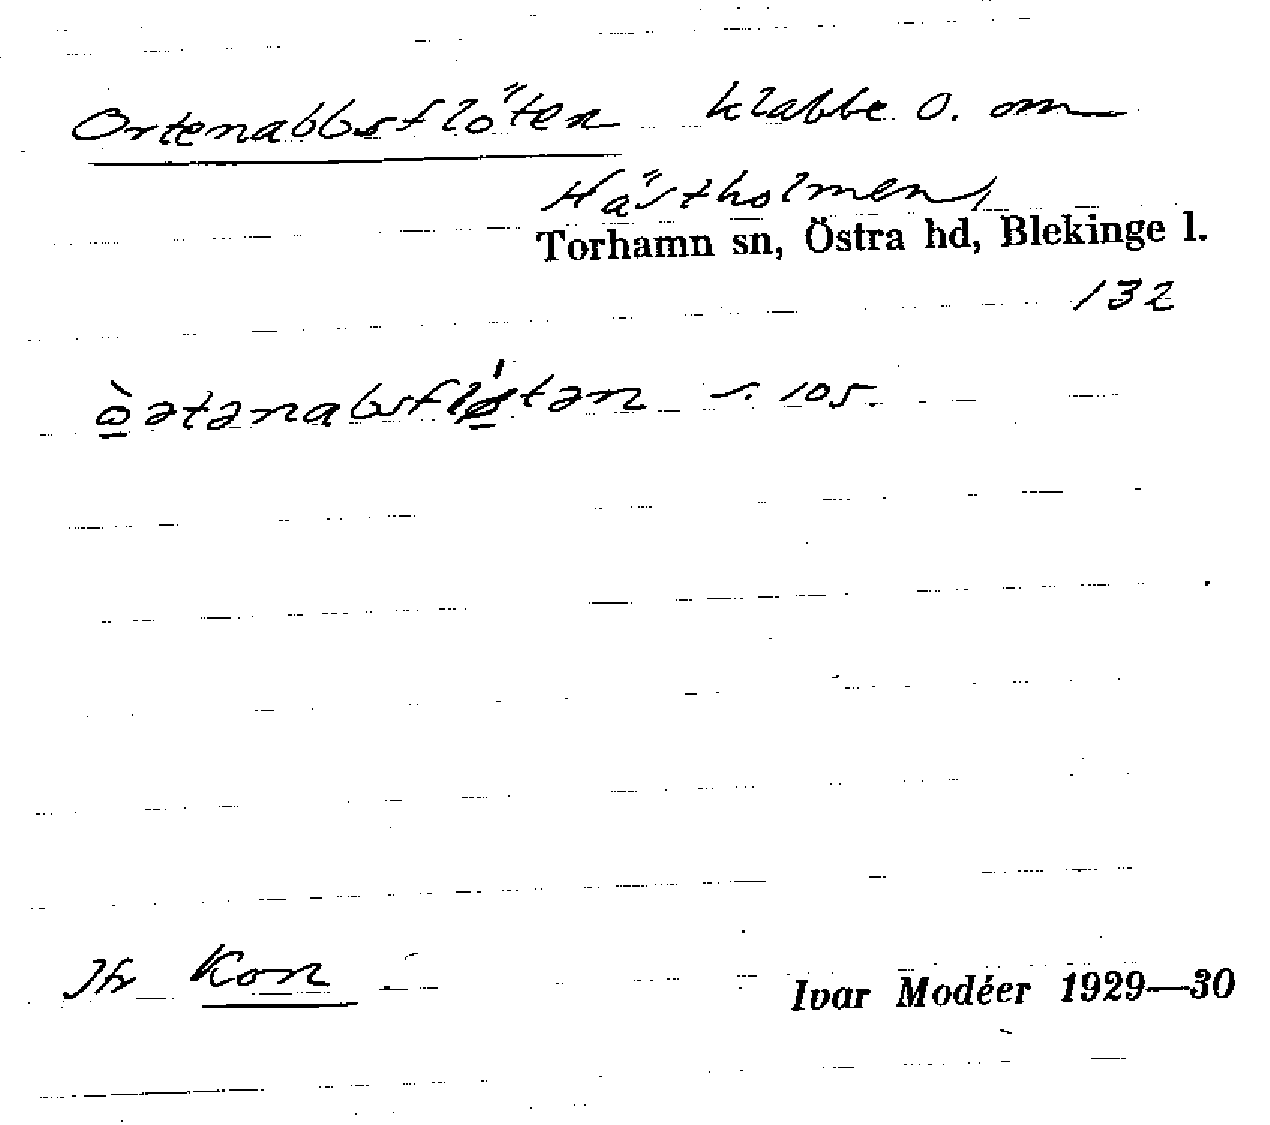 Ortenabbsflöten klabbe O. om
Hästholmen,
Torhamn sn, Östra hd, Blekinge l.
132
ò̱ətənabsflǿ̱tən s. 105.
Jfr Kon
Ivar Modéer 1929—30